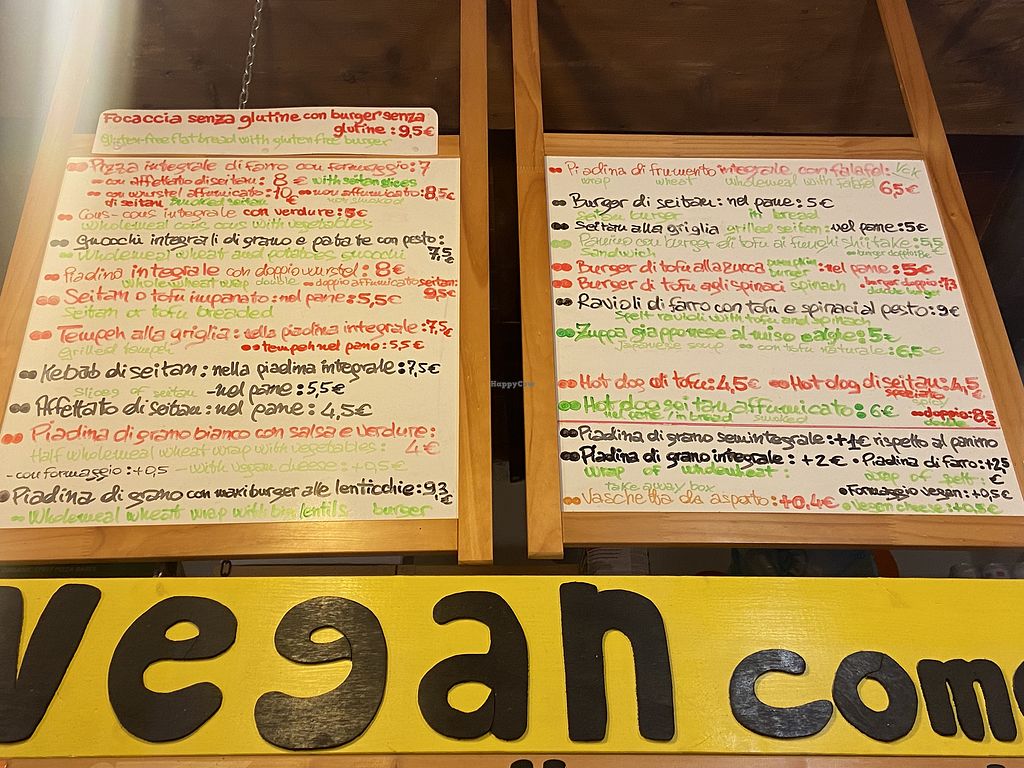 Focaccia senza glutine con burger senza
glutine : 9,5€
Gluten-free flat bread with gluten free burger
Pizza integrale di farro con formaggio: 7
con affettato di seitan: 8 € with seitan slices
con wurstel affumicato: 10 € non affumicato: 8,5€
di seitan smoked seitan not smoked
Cous-cous integrale con verdure: 5€
wholemeal cous cous with vegetables
Gnocchi integrali di grano e patate con pesto:
7,5
€
Wholemeal wheat and potatoes gnocchi
Piadina integrale con doppio wurstel: 8€
wholewheat wrap double doppio affumicato seitan:
9,5€
Seitan o tofu impanato: nel pane: 5,5€
Seitan or tofu breaded
Tempeh alla griglia: nella piadina integrale: 7,5
€
grilled tempeh tempeh nel pane: 5,5€
Kebab di seitan: nella piadina integrale: 7,5€
slices of seitan - nel pane: 5,5€
Affettato di seitan: nel pane: 4,5€
Piadina di grano bianco con salsa e verdure:
4€
Half wholemeal wheat wrap with vegetables:
- con formaggio: +0,5 - with vegan cheese: +0,5€
Piadina di grano con maxi burger alle lenticchie: 9,3
€
Wholemeal wheat wrap with big lentils burger
Piadina di frumento integrale con falafel:
wrap wheat wholemeal with falafel
6,5€
Burger di seitan: nel pane: 5€
seitan burger in bread
Seitan alla griglia grilled seitan: nel pane: 5€
Panino con burger di tofu ai funghi shiitake: 5,5
Sandwich burger doppio
Burger di tofu alla zucca pumpkin burger : nel pane: 5€
Burger di tofu agli spinaci spinach burger doppio:
double burger
Ravioli di farro con tofu e spinaci al pesto: 9€
Spelt ravioli with tofu and spinach
Zuppa giapponese al miso e alghe: 5€
Japanese soup con tofu naturale: 6,5€
Hot dog di tofu: 4,5€ Hot dog di seitan: 4,5
speziato
spicy €
Hot dog seitan affumicato: 6€ doppio: 8,5
nel pane / in bread smoked double €
Piadina di grano semintegrale: +1€ rispetto al panino
Piadina di grano integrale : +2€ Piadina di farro: +2,5
€
wrap of wholewheat : wrap of spelt:
Formaggio vegan: +0,5€
take away box
Vaschetta da asporto: +0,4€ Vegan cheese: +0,5€
HappyCow
vegan come